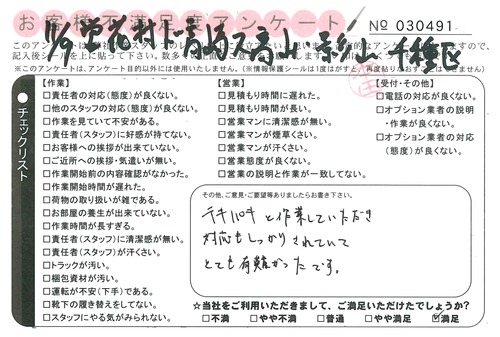 お客様不満足度アンケート
No 030491
【作業】
□責任者の対応(態度)が良くない。
□他のスタッフの対応(態度)が良くない。
□作業を見ていて不安がある。
□責任者(スタッフ)に好感が持てない。
□お客様への挨拶が出来ていない。
□ご近所への挨拶・気遣いが無い。
□作業開始前の内容確認がなかった。
□作業開始時間が遅れた。
□荷物の取り扱いが雑である。
□お部屋の養生が出来ていない。
□作業時間が長すぎる。
□責任者(スタッフ)に清潔感が無い。
□責任者(スタッフ)が汗くさい。
□トラックが汚い。
□梱包資材が汚い。
□運転が不安(下手)である。
□靴下の履き替えをしてない。
□スタッフにやる気がみられない。
【営業】
□見積もり時間に遅れた。
□見積もり時間が長い。
□営業マンに清潔感が無い。
□営業マンが煙草くさい。
□営業マンが汗くさい。
□営業態度が良くない。
□営業の説明と作業が一致してない。
【受付・その他】
□電話の対応が良くない。
□オプション業者の説明
・作業が良くない。
□オプション業者の対応
(態度)が良くない。
チェックリスト
その他、ご意見・ご要望等ありましたらお書き下さい。
テキパキと作業していただき
対応もしっかりされていて
とても有難かったです。
☆当社をご利用いただきまして、ご満足いただけたでしょうか?
□不満 □やや不満 □普通 □やや満足 ☑満足